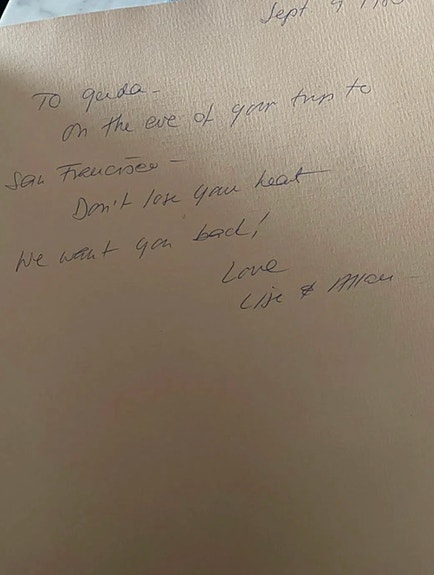 Sept 9
To
on the eve of your trip to
San Francisco -
Don't lose your heart
We want you back!
Love
Lise & Allan